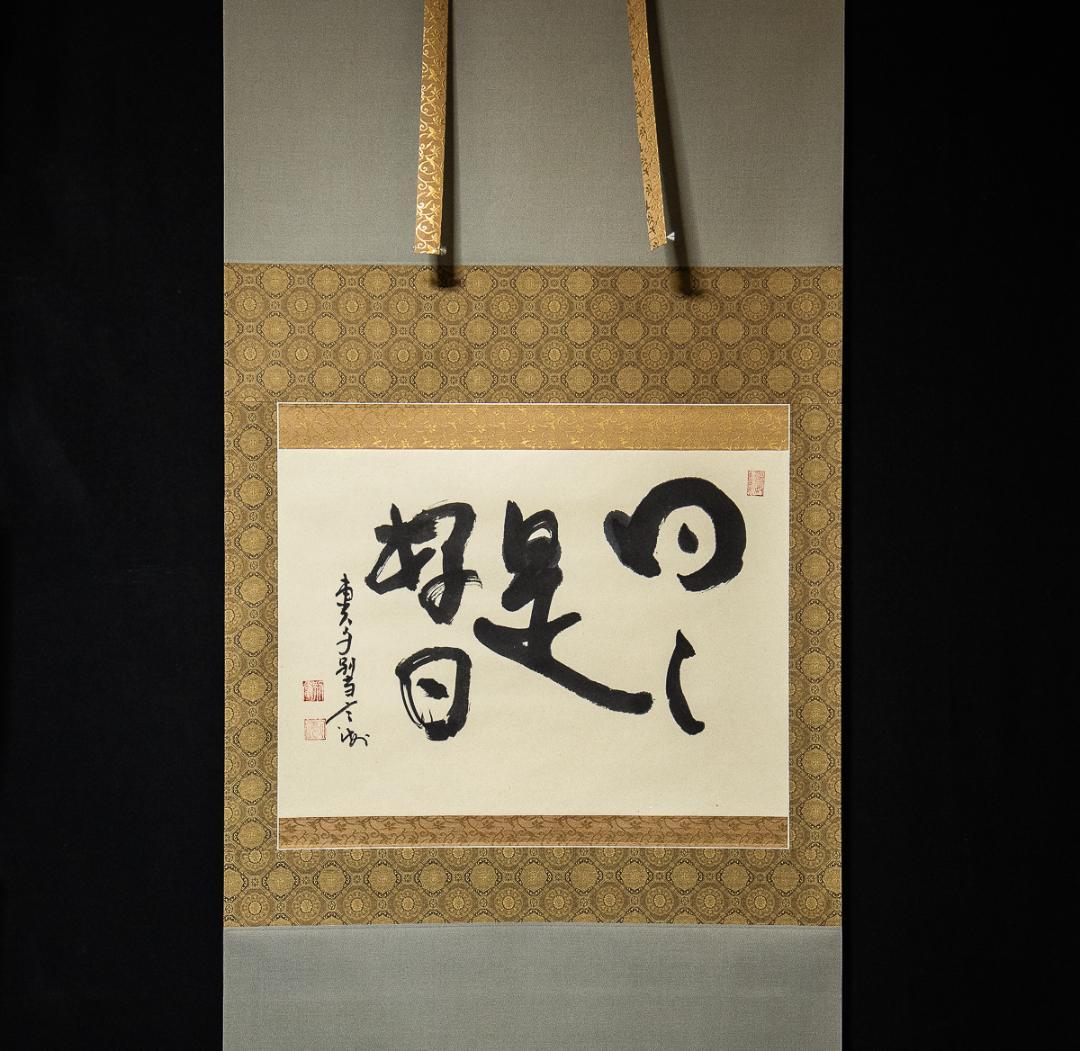 日々
是
好日
東大寺別当